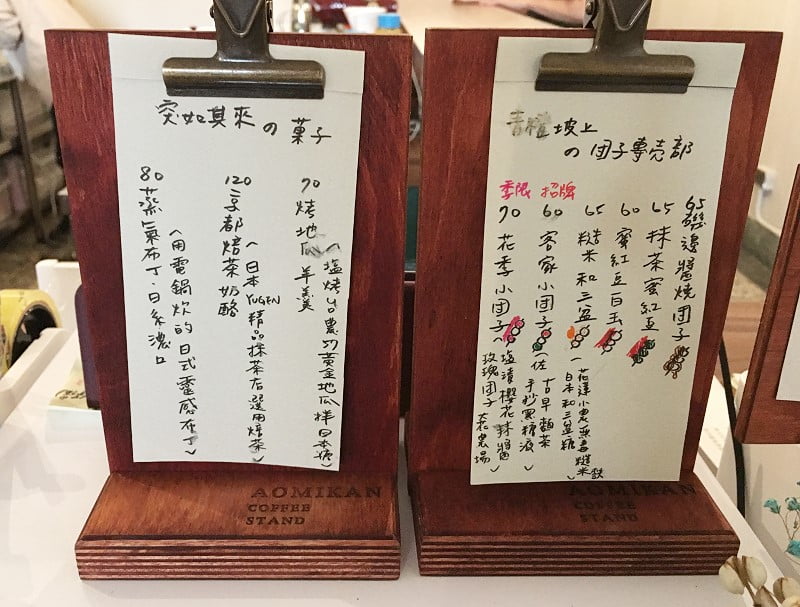 突如其來の菓子
70 烤地瓜羊羹
(塩烤台農57黃金地瓜拌日本糖)
120 京都焙茶奶酪
(日本YUGEN精品抹茶店選用焙茶)
80 蒸氣布丁·日系濃口
(用電鍋炊的日式靈感布丁)
AOMIKAN
COFFEE
STAND
坡上
の団子專売部
65 磯邊醬燒団子
65 抹茶蜜紅豆
60 蜜紅豆白玉
65 糙米和三盆
(花蓮小農無毒糙米
日本和三盆糖)
招牌
60 客家小団子
(佐古早麵茶
手炒黑糖液)
季限
70 花季小団子
(塩漬櫻花辣醬
玫瑰団子 花農場)
AOMIKAN
COFFEE
STAND